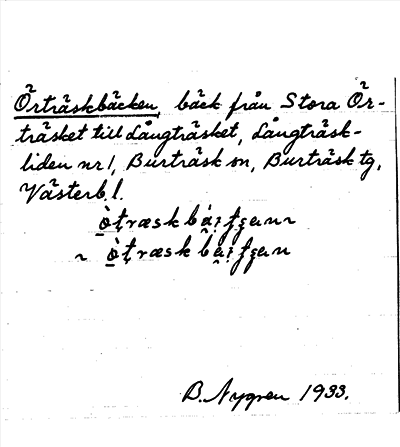 Örträskbäcken, bäck från Stora Ör-
träsket till Långträsket, Långträsk-
liden nr 1, Burträsk sn, Burträsk tg,
Västerb. l.
B. Nygren 1933.